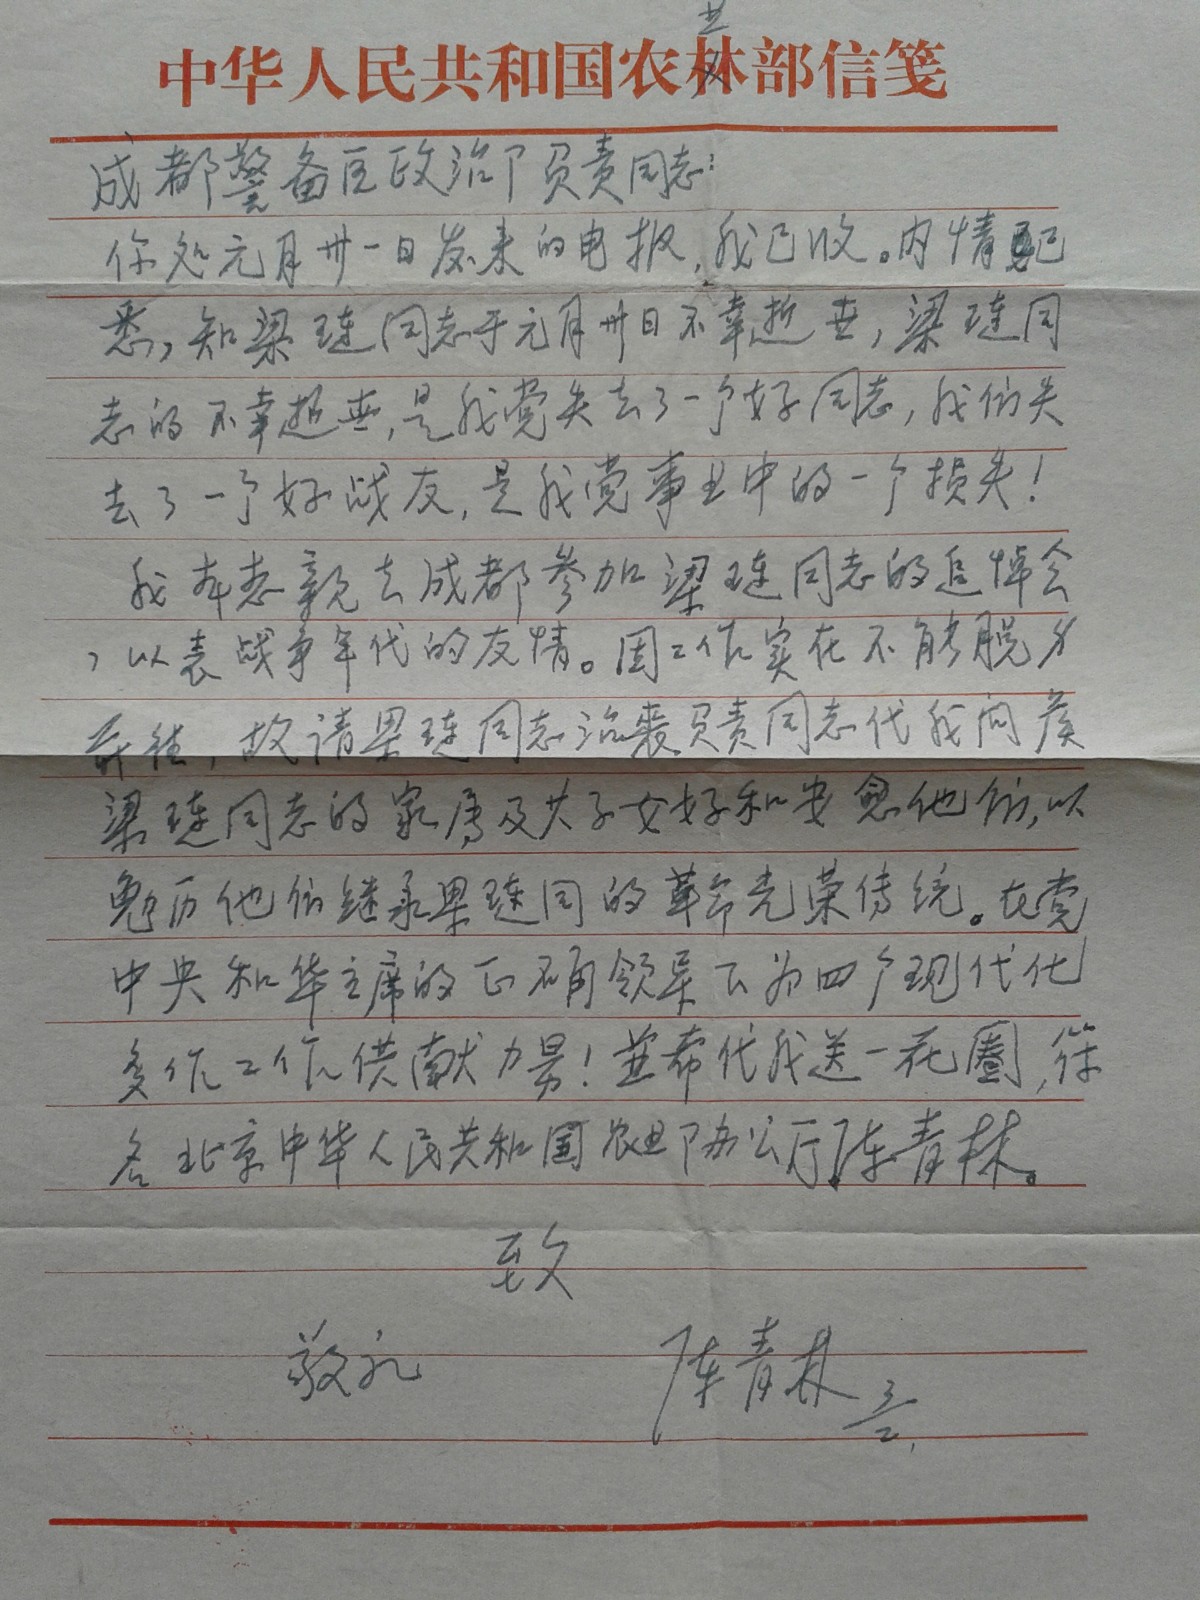 业
中华人民共和国农林部信笺
成都警备区政治卩负责同志：
你处元月卅一日发来的电报，我已收。内情已
悉，知梁琏同志于元月卅日不幸逝世，梁琏同
志的不幸逝世，是我党失去了一个好同志，我们失
去了一个好战友，是我党事业中的一个损失！
我本想亲去成都参加梁琏同志的追悼会
，以表战争年代的友情。因工作实在不能脱身
前往，故请梁琏同志治丧负责同志代我向
梁琏同志的家属及其子女好和安慰他们，以
勉历他们继承梁琏同的革命光荣传统。在党
中央和华主席的正确领导下为四个现代化
多作工作供献力量！并希代我送一花圈，符
名北京中华人民共和国农业卩办公厅陈青林。
致
敬礼
陈青林